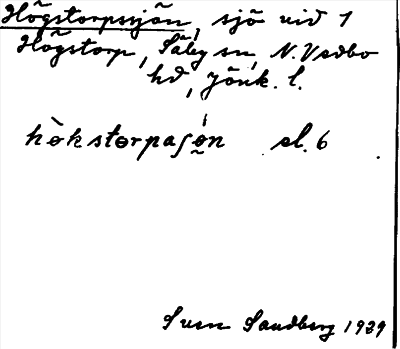 Högstorpssjön, sjö vid 1
Högstorp, Säby sn, N. Vedbo
hd, Jönk. l.
hòkstorpaʃø̀n sl. 6
Sven Sandberg 1929